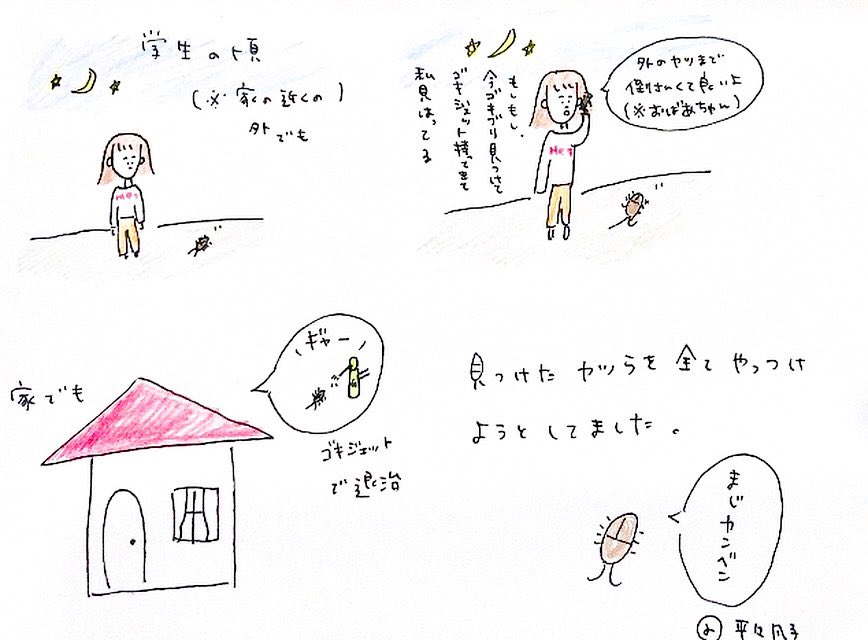 学生の頃
(※家の近くの)
外でも
もしもし、
今ゴキブリ見つけて
ゴキジェット持ってきて
私見はってる
外のヤツまで
倒さんくて良いよ
(※おばあちゃん)
家でも
ギャー
ゴキジェット
で退治
見つけた ヤツらを 全て やっつけ
ようと してました。
まじカンベン